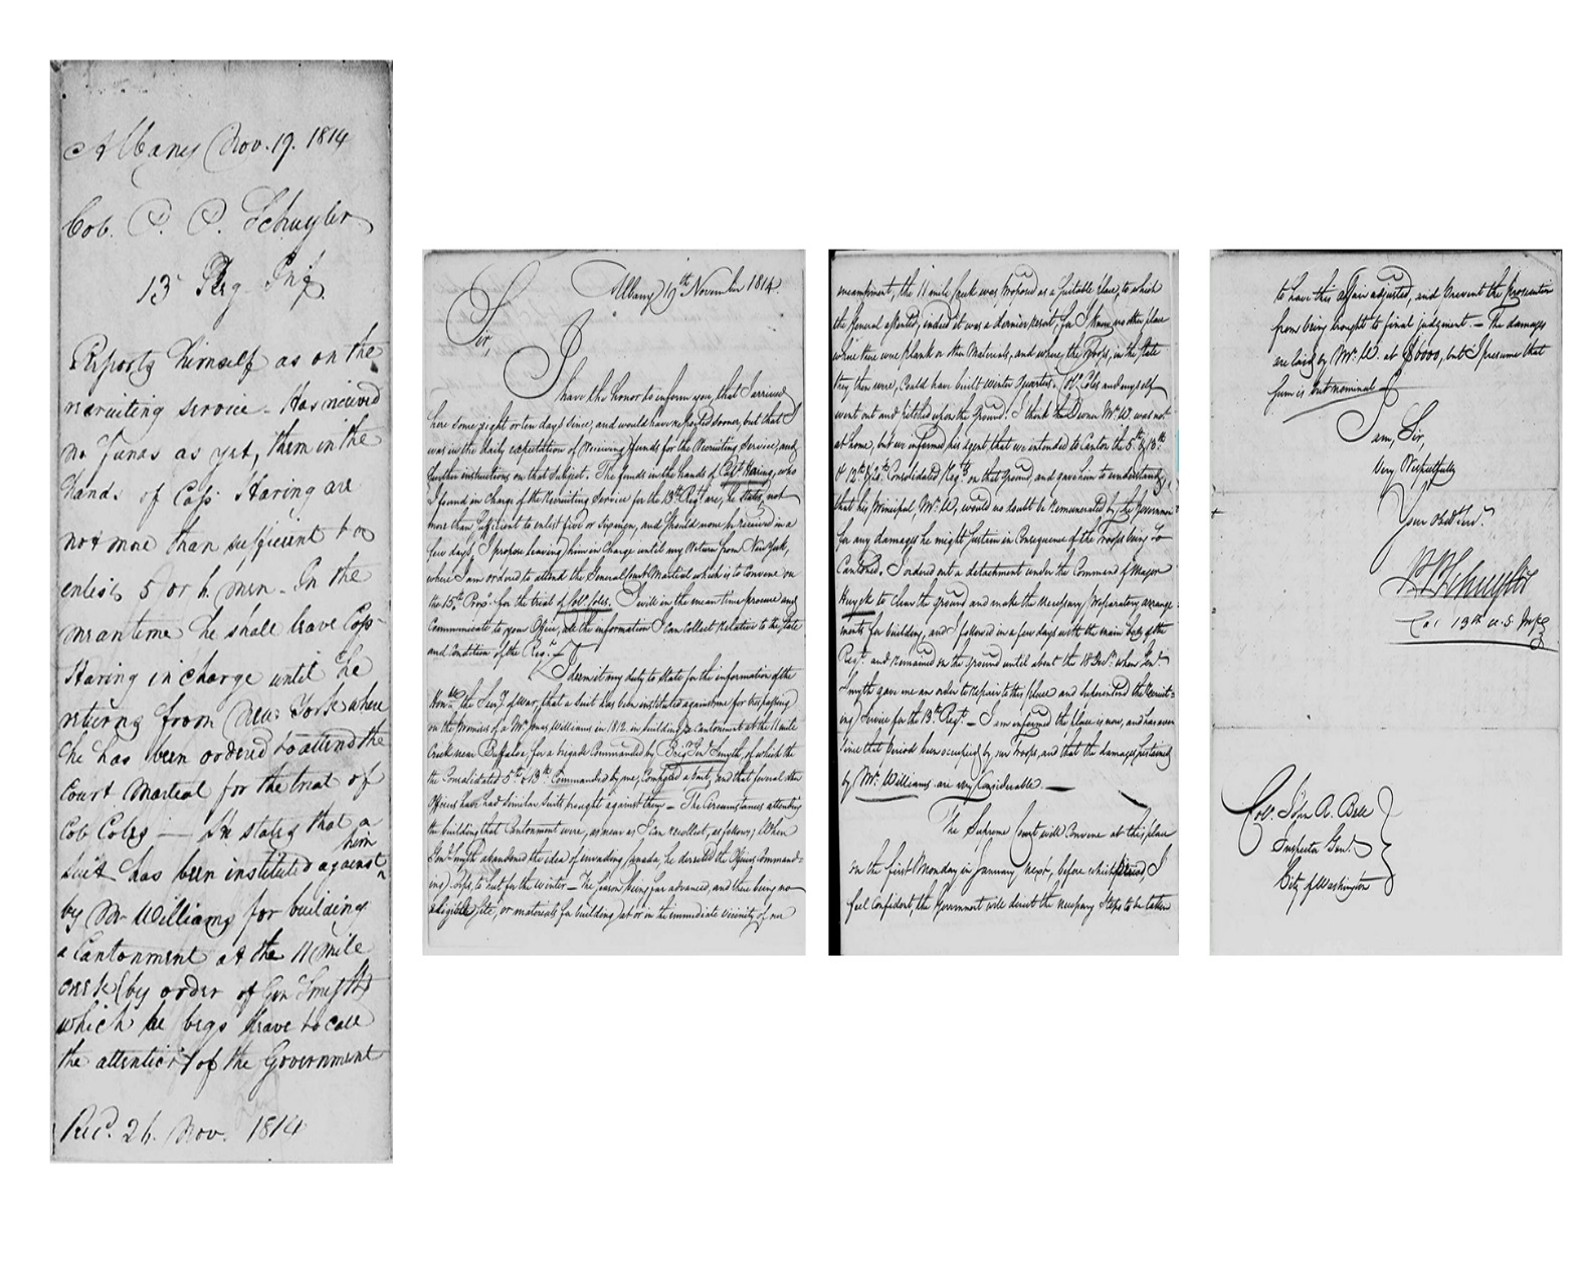 Albany Nov. 19. 1814
Col. P. P. Schuyler
13 Reg Inf.
Reports himself as on the
recruiting service - Has received
no funds as yet, them in the
hands of Cap. Haring are
not more than sufficient to
enlist 5 or 6 men - In the
meantime he shall leave Cap
Haring in charge until he
returns from New York where
he has been ordered to attend the
Court Martial for the trial of
Col Coles — He states that a
suit has been instituted against him
by Mr Williams for building
a Cantonment at the 11 mile
creek (by order of Gen Smyth)
which he begs leave to call
the attention of the Government
Recd. 26. Nov. 1814
Albany 19th November 1814.
Sir,
I have the honor to inform you, that I arrived
here some eight or ten days since, and would have reported sooner, but that I
was in the daily expectation of receiving funds for the Recruiting Service, and
further instructions on that subject. The funds in the hands of Capt Haring, who
I found in charge of the Recruiting Service for the 13th Regt are, he states, not
more than sufficient to enlist five or six men, and should none be received in a
few days, I propose leaving him in Charge until my Return from New York,
where I am ordered to attend the General Court Martial which is to convene on
the 15th Prox. for the trial of Col. Coles. I will in the mean time procure and
Communicate to your Office, all the information I can collect relative to the state
and Condition of the Regt.—
I deem it my duty to state for the information of the
Honble the Secy of War, that a suit has been instituted against me for trespassing
on the Premises of a Mr Jonas Williams in 1812. in building a Cantonment at the 11 mile
Creek near Buffaloe, for a brigade Commanded by Brigr Genl Smyth, of which the
the Consolidated 5th & 13th Commanded by me, Composed a part, and that several other
Officers have had similar suits brought against them — The Circumstances attending
the building that Cantonment were, as near as I can recollect, as follows; When
Genl Smyth abandoned the idea of invading Canada, he directed the Officers Command-
ing Corps, to hut for the winter — The season being far advanced, and there being no
eligible site, or materials for building at or in the immediate vicinity of our
encampment, the 11 mile Creek was proposed as a suitable place, to which
the General assented, indeed it was a dernier resort, for I know no other place
where there were plank or other Materials, and where the troops, in the state
they then were, could have built winter quarters. Col. Coles and myself
went out and pitched upon the ground. I think the Owner Mr. W. was not
at home, but we informed his agent that we intended to Canton the 5th & 13th
& 12th & 20th Consolidated Regts on that ground, and gave him to understand,
that his principal Mr. W, would no doubt be remunerated by the Government
for any damages he might sustain in Consequence of the troops being so
Cantoned. I ordered out a detachment under the Command of Major
Huyck to clear the ground and make the necessary preparatory arrange-
ments for building, and I followed in a few days with the main body of the
Regt. and remained on the ground until about the 18 Decr. when Genl.
Smyth gave me an order to repair to this place and superintend the Recruit-
ing Service for the 13th Regt. — I am informed the place is now, and has ever
since that period been occupied by our troops, and that the damages sustained
by Mr. Williams are very Considerable. —
The Supreme Court will Convene at this place
on the first Monday in January next, before which period, I
feel confident, the Government will direct the necessary steps to be taken
to have this affair adjusted, and prevent the prosecution
from being brought to final judgment. — The damages
are laid by Mr. W. at $6000, but I presume that
sum is but nominal
I am, Sir,
Very Respectfully
Your Obedt Servt.
P. P. Schuyler
Col 13th U.S. Infy
Col. John R. Bell
Inspector Genl.
City of Washington